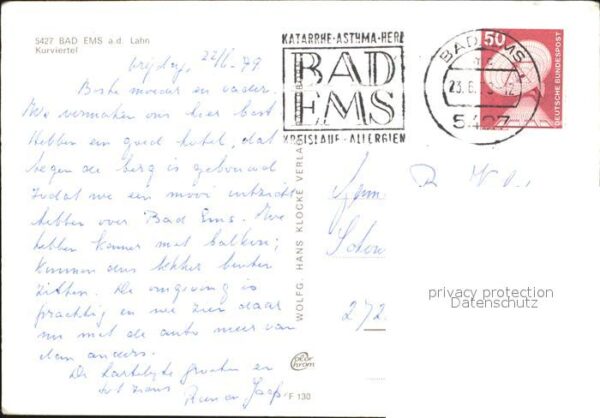 5427 BAD EMS a.d. Lahn
Kurviertel
Vrijdag, 22/6 '79
Beste moeder en vader.
We vermaken ons hier best
Hebben een goed hotel, dat
tegen de berg is gebouwd
zodat we een mooi uitzicht
hebben over Bad Ems. We
hebben kamer met balkon;
kunnen dus lekker buiten
zitten. De omgeving is
prachtig en we zien daar
nu met de auto meer van
dan anders.
De hartelijke groeten en
tot ziens
en Jaap
KATARRHE-ASTHMA-HERZ
BAD
EMS
KREISLAUF-ALLERGIEN
BAD EMS 1
23.6.
5427
50
DEUTSCHE BUNDESPOST
WOLFG. HANS KLOCKE VERLAG
272
color
chrom
F 130
privacy protection
Datenschutz